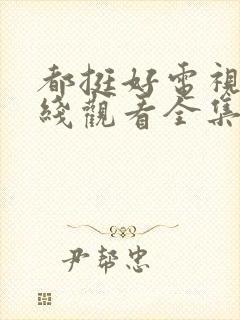 都挺好電視
綫觀看全集
尹幫忠